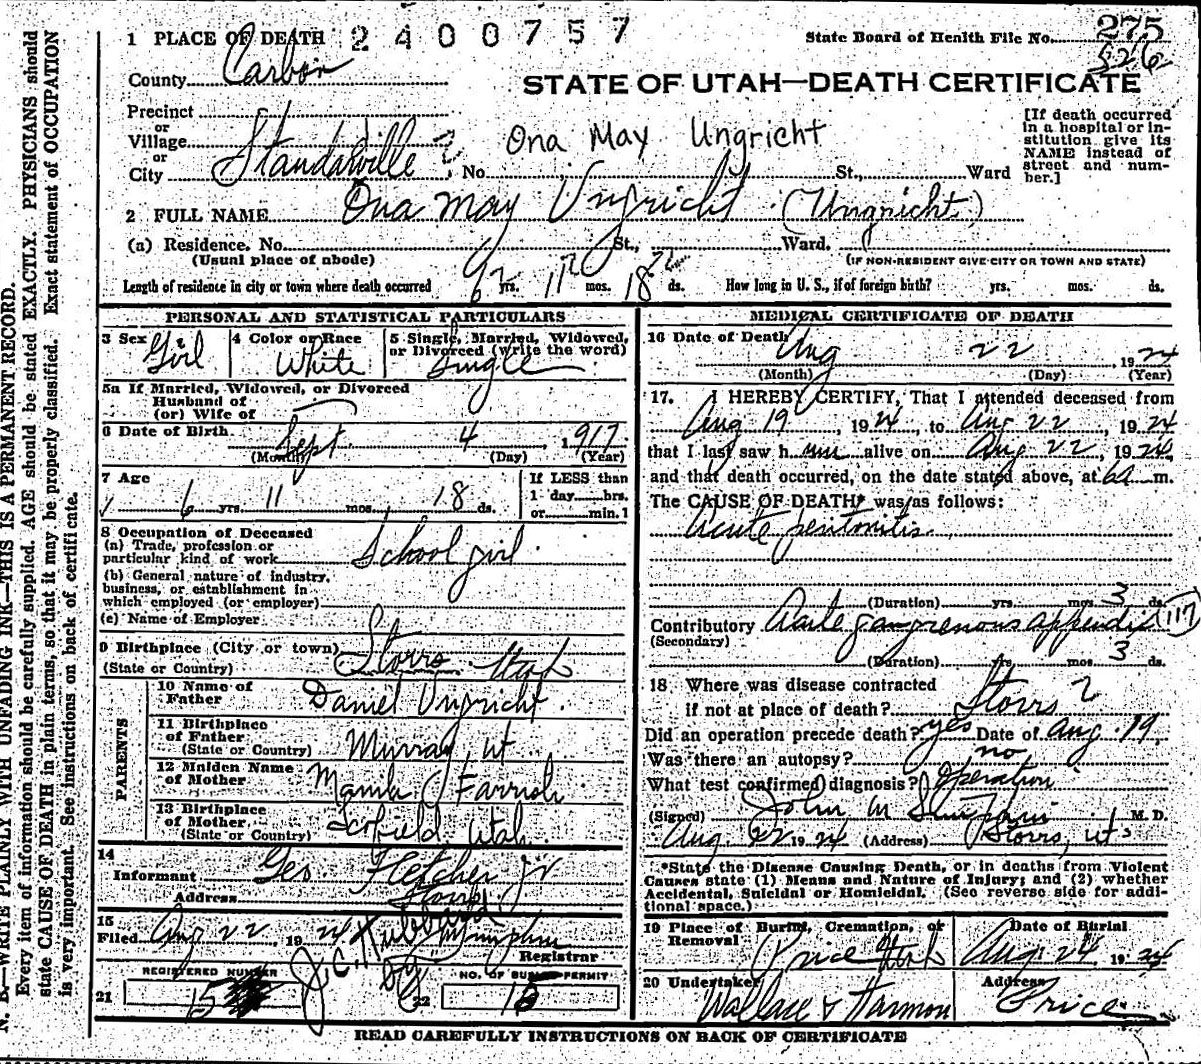 1 PLACE OF DEATH 2400757 State Board of Health File No. 275
526
County Carbon
STATE OF UTAH—DEATH CERTIFICATE
Precinct
or
Village
or
City Standardville ? No. St., Ward
Ona May Ungricht
[If death occurred
in a hospital or in-
stitution give its
NAME instead of
street and num-
ber.]
2 FULL NAME Ona May Ungricht (Ungricht)
(a) Residence. No. St., Ward.
(Usual place of abode) (IF NON-RESIDENT GIVE CITY OR TOWN AND STATE)
Length of residence in city or town where death occurred 6 yrs. 11 mos. 18 ds. How long in U. S., if of foreign birth? yrs. mos. ds.
PERSONAL AND STATISTICAL PARTICULARS
3 Sex Girl 4 Color or Race White 5 Single, Married, Widowed,
or Divorced (write the word) Single
5a If Married, Widowed, or Divorced
Husband of
(or) Wife of
6 Date of Birth Sept 4, 1917
(Month) (Day) (Year)
7 Age 6 yrs. 11 mos. 18 ds.
If LESS than
1 day hrs.
or min.
8 Occupation of Deceased
(a) Trade, profession or
particular kind of work School girl
(b) General nature of industry,
business, or establishment in
which employed (or employer)
(c) Name of Employer
9 Birthplace (City or town) Storrs Utah
(State or Country)
PARENTS
10 Name of
Father Daniel Ungricht
11 Birthplace
of Father Murray, Ut
(State or Country)
12 Maiden Name
of Mother
13 Birthplace
of Mother Scofield Utah
(State or Country)
14
Informant Geo Fletcher Jr
Address Storrs
15
Filed Aug 22, 1924 J.C. Hubbard
Registrar
REGISTERED NUMBER
21 15
NO. OF BURIAL PERMIT
22 15
MEDICAL CERTIFICATE OF DEATH
16 Date of Death Aug 22, 1924
(Month) (Day) (Year)
17. I HEREBY CERTIFY, That I attended deceased from
Aug 19, 1924, to Aug 22, 1924
that I last saw h alive on Aug 22, 1924,
and that death occurred, on the date stated above, at 6a m.
The CAUSE OF DEATH* was as follows:
Acute peritonitis
(Duration) yrs. mos. 3 ds.
Contributory Acute gangrenous appendix 117
(Secondary)
(Duration) yrs. mos. 3 ds.
18. Where was disease contracted
if not at place of death? Storrs ?
Did an operation precede death? yes Date of Aug. 19.
Was there an autopsy? no
What test confirmed diagnosis? Operation
(Signed) John M M. D.
Aug. 22 1924 (Address) Storrs, Ut
*State the Disease Causing Death, or in deaths from Violent
Causes state (1) Means and Nature of Injury; and (2) whether
Accidental, Suicidal or Homicidal. (See reverse side for addi-
tional space.)
19 Place of Burial, Cremation, or
Removal Price Utah
Date of Burial
Aug. 24, 1924
20 Undertaker Wallace & Harmon
Address Price
READ CAREFULLY INSTRUCTIONS ON BACK OF CERTIFICATE
N. B.—WRITE PLAINLY WITH UNFADING INK—THIS IS A PERMANENT RECORD.
Every item of information should be carefully supplied. AGE should be stated EXACTLY. PHYSICIANS should
state CAUSE OF DEATH in plain terms, so that it may be properly classified. Exact statement of OCCUPATION
is very important. See instructions on back of certificate.